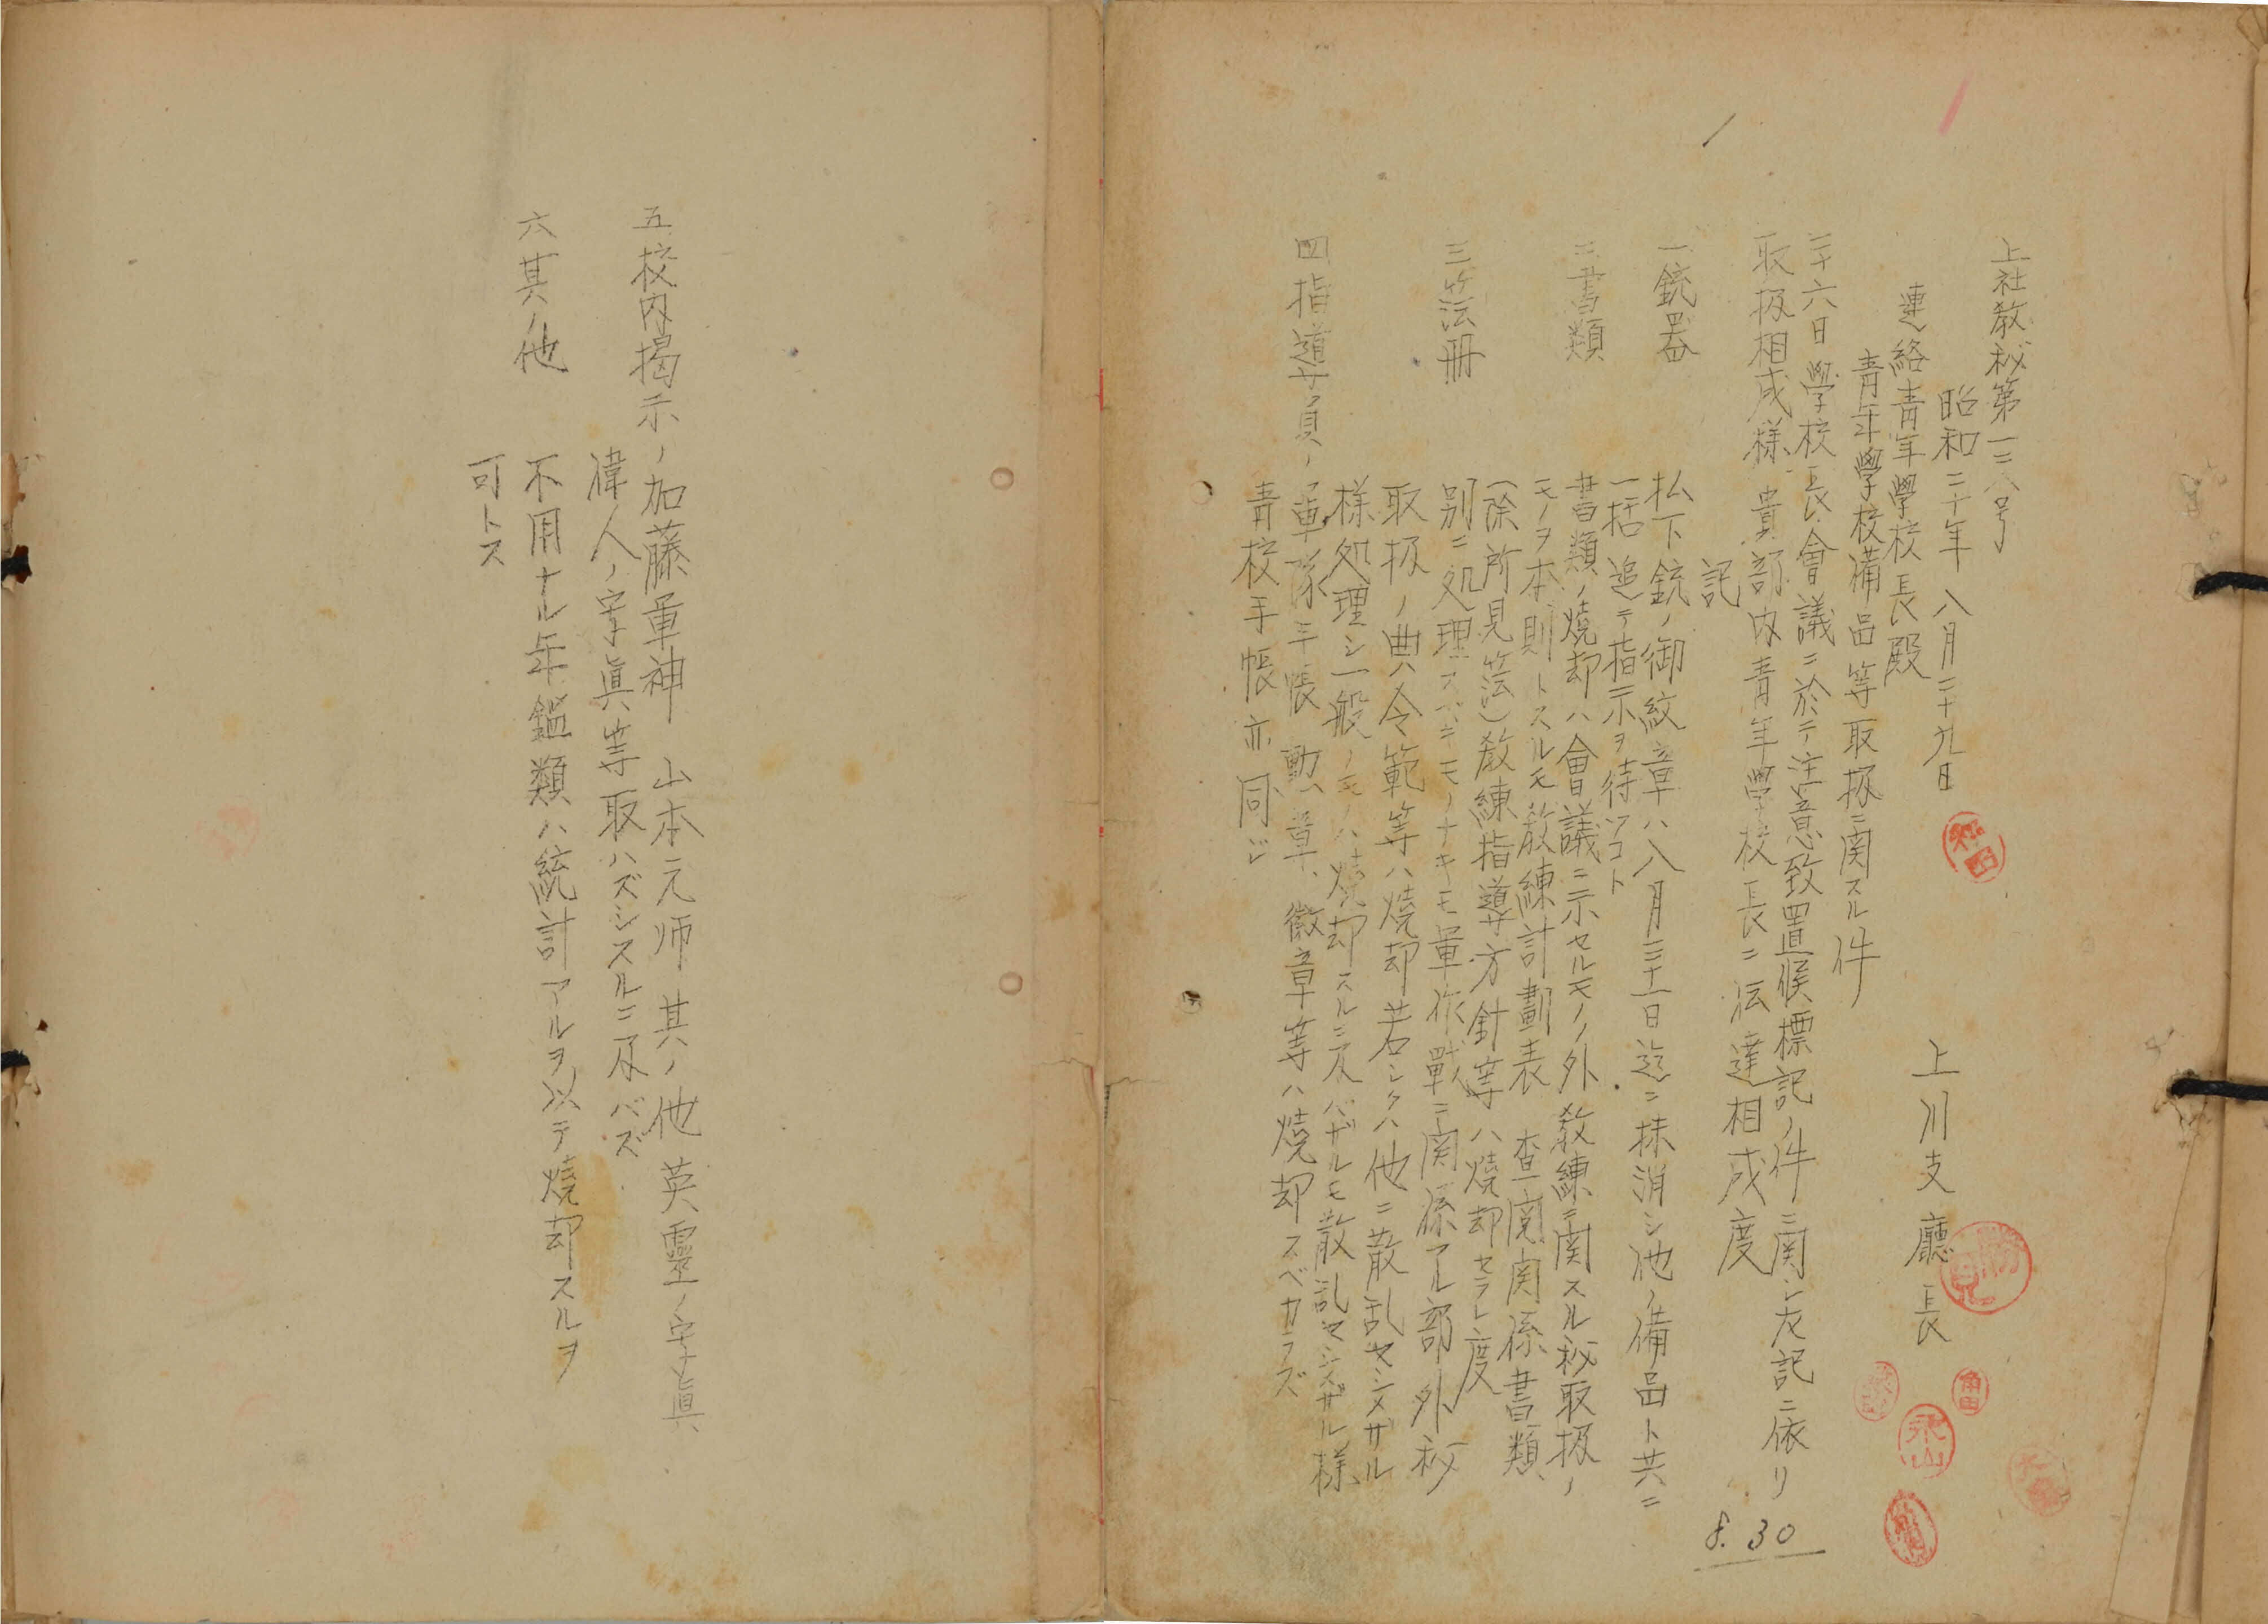 上社教秘第一二八号
昭和二十年八月二十九日
上川支廳長
連絡青年學校長殿
青年學校備品等取扱ニ関スル件
二十六日學校長會議ニ於テ注意致置候標記ノ件ニ関シ左記ニ依リ
取扱相成様貴部内青年學校長ニ伝達相成度
記
一銃器
払下銃ノ御紋章ハ八月三十一日迄ニ抹消シ他ノ備品ト共ニ
一括追テ指示ヲ待ツコト
二書類
書類ノ燒却ハ會議ニ示セルモノノ外教練ニ関スル秘取扱ノ
モノヲ本則トスルモ教練計劃表 査閲関係書類、
(除所見簿)教練指導方針等ハ燒却セラレ度
三簿冊
別ニ処理スベキモノナキモ軍作戰ニ関係アル部外秘
取扱ノ典令範等ハ燒却若シクハ他ニ散乱セシメザル
様処理シ一般ノモノハ燒却スルニ及バザルモ散乱セシメザル様
四指導員ノ軍隊手帳 勳章、徽章等ハ燒却スベカラズ
青校手帳亦同ジ
8.30
五校内掲示ノ加藤軍神 山本元帥 其ノ他 英靈ノ写眞
偉人ノ写眞等取ハズシスルニ及バズ
六其ノ他
不用ナル年鑑類ハ統計アルヲ以テ燒却スルヲ
可トス
角田
永山